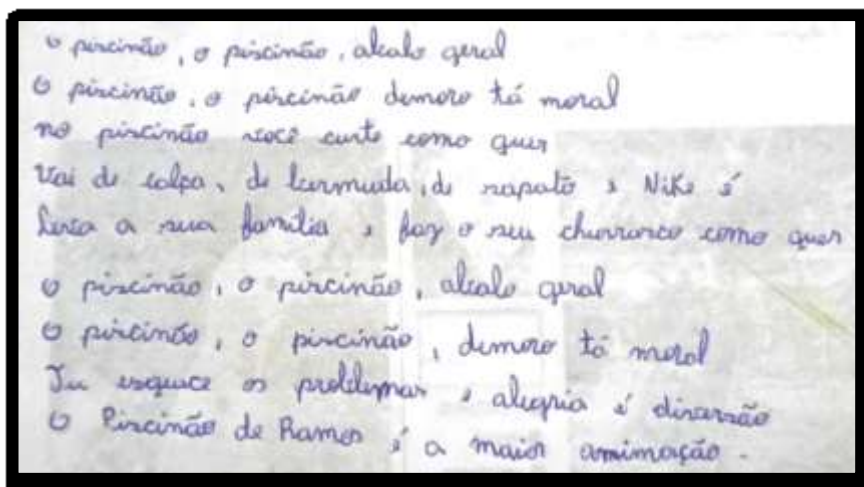 O piscinão, o piscinão, alcalo geral
O piscinão, o piscinão demoro tá moral
no piscinão você curte como quer
Vai de calça, de bermuda, de sapato e Nike é
Leva a sua família e faz o seu churrasco como quer
O piscinão, o piscinão, alcalo geral
O piscinão, o piscinão, demoro tá moral
Tu esquece os problemas e alegria é diversão
O Piscinão de Ramos é a maior amimação.